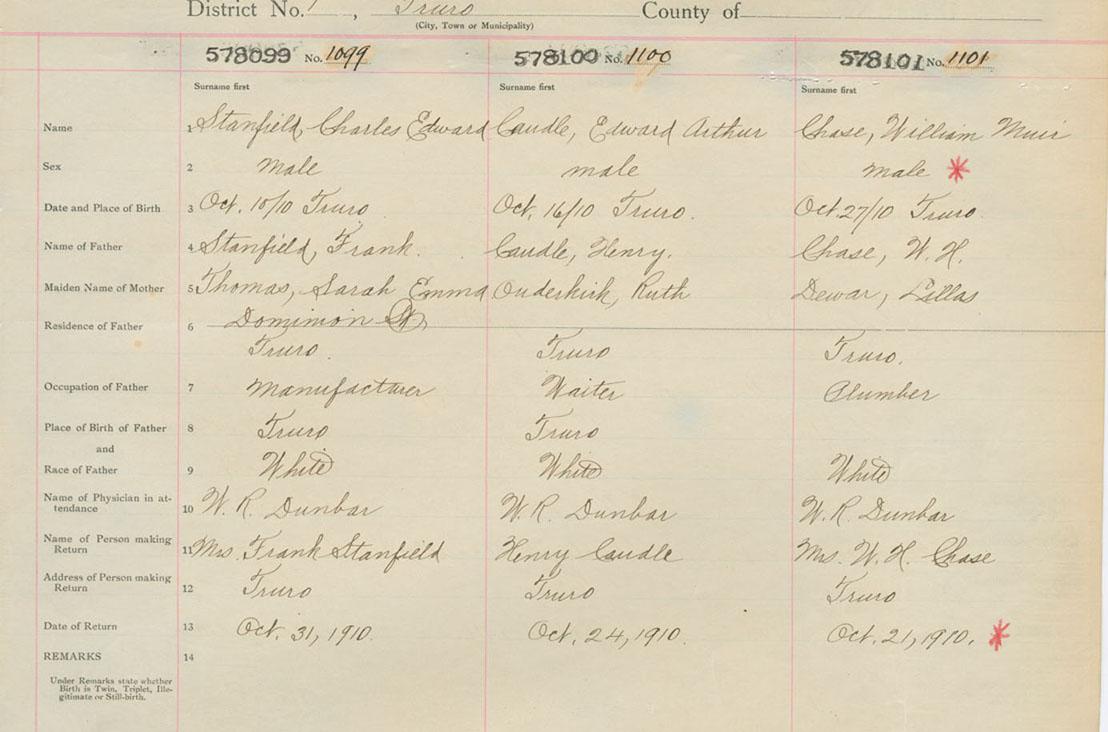 District No. 1, Truro County of
(City, Town or Municipality)
578099 No. 1099 578100 No. 1100 578101 No. 1101
Surname first Surname first Surname first
Name 1 Stanfield, Charles Edward Caudle, Edward Arthur Chase, William Muir
Sex 2 Male male male *
Date and Place of Birth 3 Oct. 10/10 Truro Oct. 16/10 Truro. Oct. 27/10 Truro
Name of Father 4 Stanfield, Frank. Caudle, Henry. Chase, W. H.
Maiden Name of Mother 5 Thomas, Sarah Emma Ouderkirk, Ruth Dewar, Lillas
Residence of Father 6 Dominion St
Truro. Truro Truro.
Occupation of Father 7 Manufacturer Waiter Plumber
Place of Birth of Father 8 Truro Truro
and
Race of Father 9 White White White
Name of Physician in at-
tendance 10 W. R. Dunbar W. R. Dunbar W. R. Dunbar
Name of Person making
Return 11 Mrs. Frank Stanfield Henry Caudle Mrs. W. H. Chase
Address of Person making
Return 12 Truro Truro Truro
Date of Return 13 Oct. 31, 1910. Oct. 24, 1910. Oct. 21, 1910. *
REMARKS 14
Under Remarks state whether
Birth is Twin, Triplet, Ille-
gitimate or Still-birth.